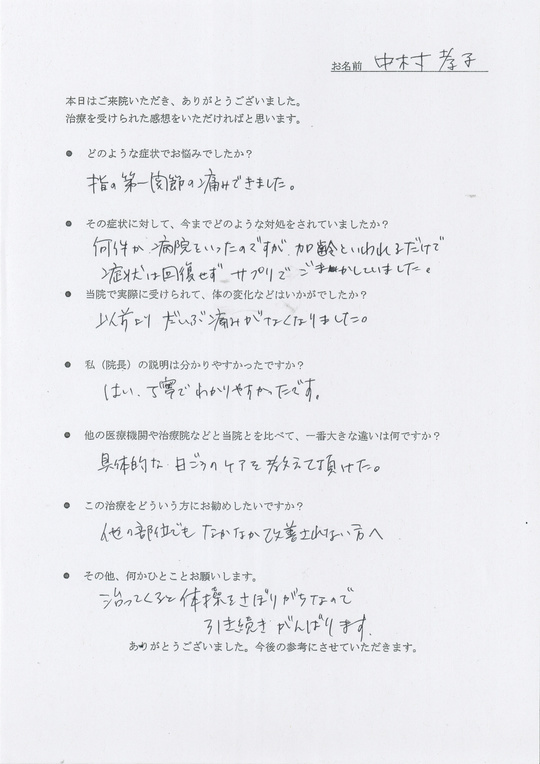 お名前 中村 孝子
本日はご来院いただき、ありがとうございました。
治療を受けられた感想をいただければと思います。
● どのような症状でお悩みでしたか？
指の第一関節の痛みできました。
● その症状に対して、今までどのような対処をされていましたか？
何件か病院をいったのですが 加齢といわれるだけで
症状は回復せず サプリで ごまかしていました。
● 当院で実際に受けられて、体の変化などはいかがでしたか？
以前より だいぶ痛みがなくなりました。
● 私（院長）の説明は分かりやすかったですか？
はい、丁寧でわかりやすかったです。
● 他の医療機関や治療院などと当院とを比べて、一番大きな違いは何ですか？
具体的な 日ごろのケアを教えて頂けた。
● この治療をどういう方にお勧めしたいですか？
他の部位でも なかなか改善されない方へ
● その他、何かひとことお願いします。
治ってくると体操をさぼりがちなので
引き続き がんばります。
ありがとうございました。今後の参考にさせていただきます。